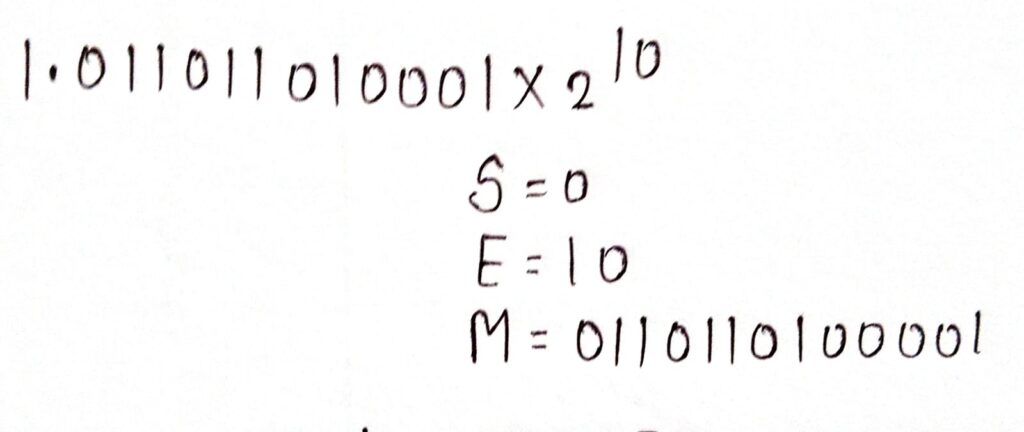 1.011011010001 x 2^10
S = 0
E = 10
M = 0110110100001